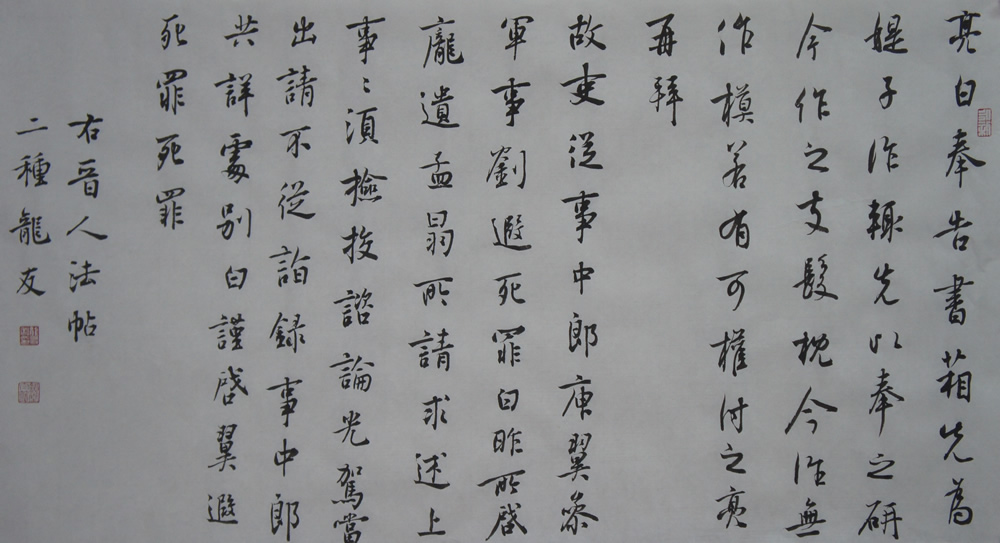 亮白奉告書葙先為
媞子作輙先以奉之研
今作之支髮枕今作無
作模若有可權付之亮
再拜
故吏從事中郎庾翼參
軍事劉遐死罪白昨所啓
龐遺孟所請求述上
事〻須撿挍諮論光駕當
出請不從詣録事中郎
共詳處別白謹啓翼遐
死罪死罪
右晉人法帖
二種龍友